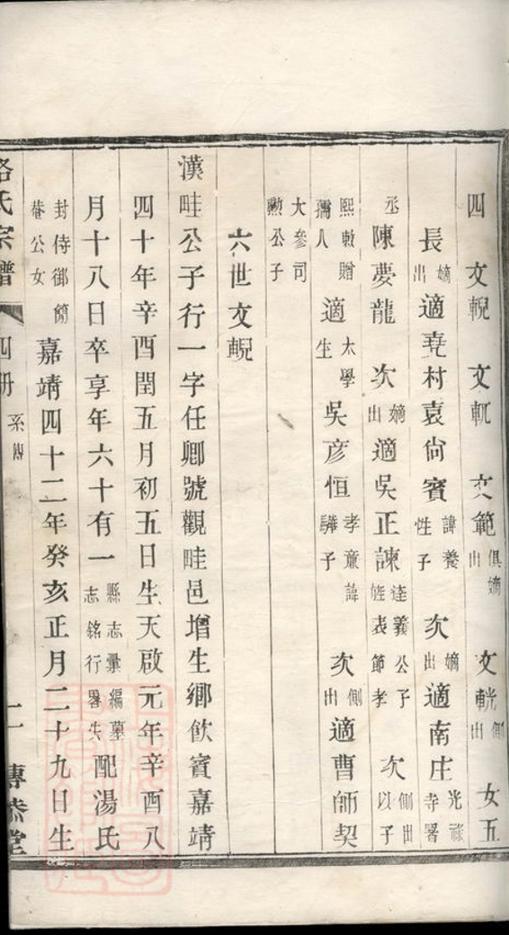 四 文輗 文軏 文範 俱嫡出 文輄 側出 女五
長 嫡出 適堯村袁尙賓 諱養性子 次 嫡出 適南庄 光祿寺署
丞 陳夢龍 次 嫡出 適吳正諫 逵義公子 旌表節孝 次 側出 以子
熙敕贈孺人 適 太學生 吳彥恒 孝童諱驊子 次 側出 適曹師契
大參司勲公子
六世文輗
漢畦公子行一字任卿號觀畦邑增生鄉飲賓嘉靖
四十年辛酉閏五月初五日生天啟元年辛酉八
月十八日卒享年六十有一 縣志彙編墓志銘行畧失 配湯氏
封侍御簡菴公女 嘉靖四十二年癸亥正月二十九日生
駱氏宗譜 四册 系傳 二 傳恭堂